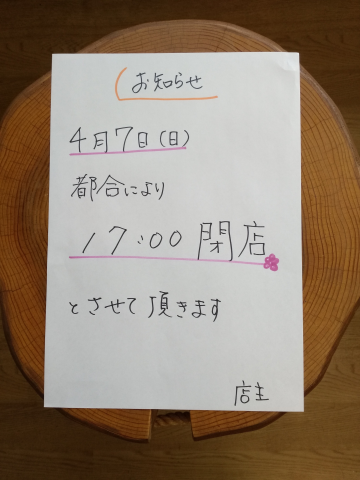 お知らせ
4月7日(日)
都合により
17:00 閉店
とさせて頂きます
店主